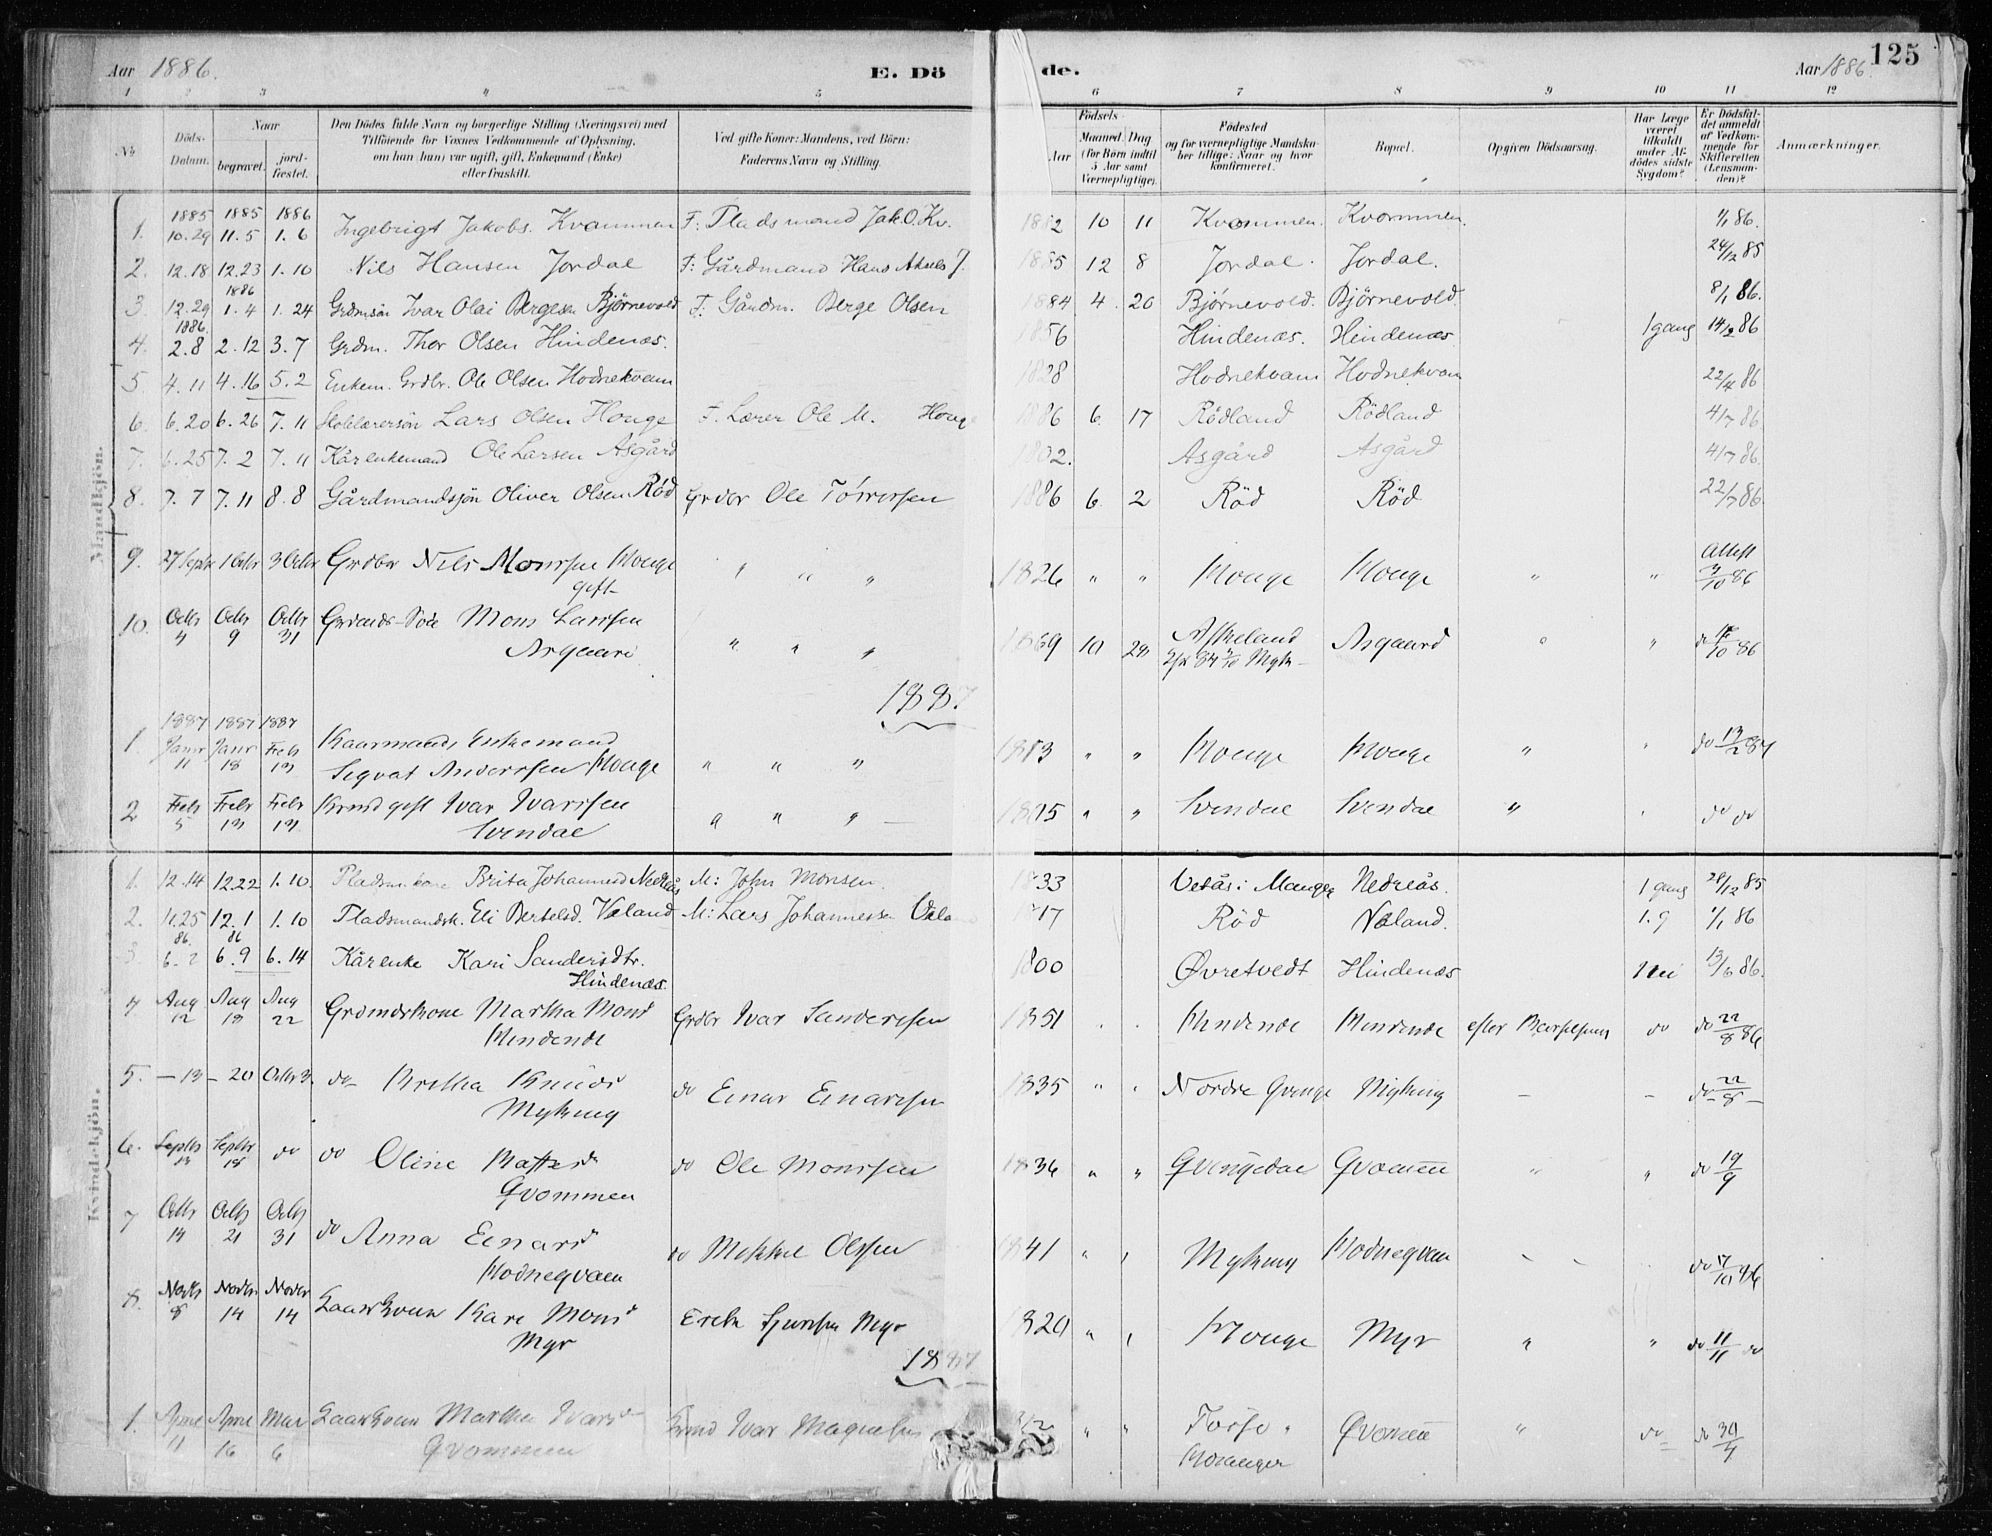 Aar 1886. E. Dö de. Aar 1886. 125
1 2 3 4 5 6 7 8 9 10 11 12
No Döds-Datum. Naar begravet. jord-fæstet.
Den Dödes fulde Navn og borgerlige Stilling (Næringsvei) med
Tilföiende for Voxnes Vedkommende af Oplysning,
om han (hun) var ugift, gift, Enkemand (Enke)
eller fraskilt.
Ved gifte Koner: Mandens, ved Börn:
Faderens Navn og Stilling.
Födsels- Aar Maaned Dag (for Börn indtil 5 Aar samt Værnepligtige).
Födested
og for værnepligtige Mandska-
ber tillige: Naar og hvor
konfirmeret.
Bopæl.
Opgiven Dödsaarsag.
Har Læge været tilkaldt under Afdödes sidste Sygdom?
Er Dödsfaldet anmeldt af Vedkommende for Skifteretten (Lensmanden)?
Anmærkninger.
Mandkjön.
1885 1885 1886
1. 10.29 11.5 1.6 Ingebrigt Jakobs. Kvammen F: Pladsmand Jak. O. Kv. 1882 10 11 Kvammen. Kvammen. 1/1 86.
2. 12.18 12.23 1.10 Nils Hansen Jordal F: Gårdmand Hans Aksels J. 1885 12 8 Jordal. Jordal. 24/12 85
1886
3. 12.29 1.4 1.24 Grdmsön Ivar Olai Bergesen Björnevold F: Gårdm. Berge Olsen 1884 4. 20 Björnevold. Björnevold. 8/1 86.
1886.
4. 2.8 2.12 3.7 Grdm. Thor Olsen Hindenæs. 1856 Hindenæs. Hindenæs. 1 gang 14/2 86
5. 4.11 4.16 5.2 Enkem. Grdbr. Ole Olsen Hodnekvam 1828 Hodnekvam Hodnekvam 22/4 86
6. 6.20 6.26 7.11 Skolelærersön Lars Olsen Houge F. Lærer Ole M. Houge 1886 6. 17 Rödland Rödland 4/7 86
7. 6.25 7.2 7.11 Kårenkemand Ole Larsen Asgård 1802. Asgård Asgård 4/7 86.
8. 7.7 7.11 8.8 Gårdmandssön Oliver Olsen Röd Grdbr Ole Törresen 1886 6. 2 Röd Röd 22/7 86.
9. 27 Septbr 1 Octbr 3 Octbr Grdbr Nils Monssen Houge 1826 " " Houge Houge " " Attest 3/10 86
gift
10. Octbr 4 Octbr 9 Octbr 31 Mons Larssen 1869 10 Askeland Asgaard " do 86
Asgaard
1887
1887 1887 1887
1. Janr 11 Janr 18 Febr 13 Kaarmand, Enkemand Houge Houge " do 13/2 87
Sigvat Anderssen Houge " " "
2 Febr 5 Febr 13 Febr 13 gift Ivar Ivarssen Svendal Svendal " do do
Svendal " " "
Kvindekjön.
1. 12.14 12.22 1.10. Pladsm.kone Brita Johannesd Nedreås M: John Monsen. 1833 Vetås i Manger Nedreås. 1 gang 24/12 85
2. 11.25 12.1 1.10 Pladsmandsk. Eli Bertelsd. Væland M: Lars Johannessen Væland 1817 Röd Væland. 1. g 1/1 86
86. 86
3. 6.2 6.9 6.14 Kårenke Kari Sandersdtr. 1800 Øvretvedt Hindenæs Nei 13/6 86.
Hindenæs.
4 Aug 12 Aug 18 Aug 22 Grdmdskone Martha Monsd Grdbr Ivar Sanderssen 1851 Hindenæs Hindenæs efter Barselseng do do 22/8 86
Hindenæs
5. — 13 — 20 Octbr 3. do Britha Knudsd do Einar Einarssen 1835 " Nordre Qvinge Myking — — do 22/8 —
Myking
6. Septbr 13 Septbr 18 do do Oline do Ole Monssen 1836 " " Qvingedal Qvammen " " do 19/9
Qvammen
7 Octbr 14 Octbr 21 Octbr 31 do Anna Einarsd do Mikkel Olssen 1841 " Myking Hodneqvam do 17/10 86
Hodneqvam
8. Novbr 8 Novbr 14 Novbr 14 Kaarkona Kari Monsd Erik Sjurssen Myr 1820 " Houge Myr " " do 11/11 do
Myr
1887
1. April 11 April 16 Mai 6 Kaarkona Martha Ivarsd Ivar Magnessen " " Fosse Qvammen " do do 30/4
Qvammen Hosanger